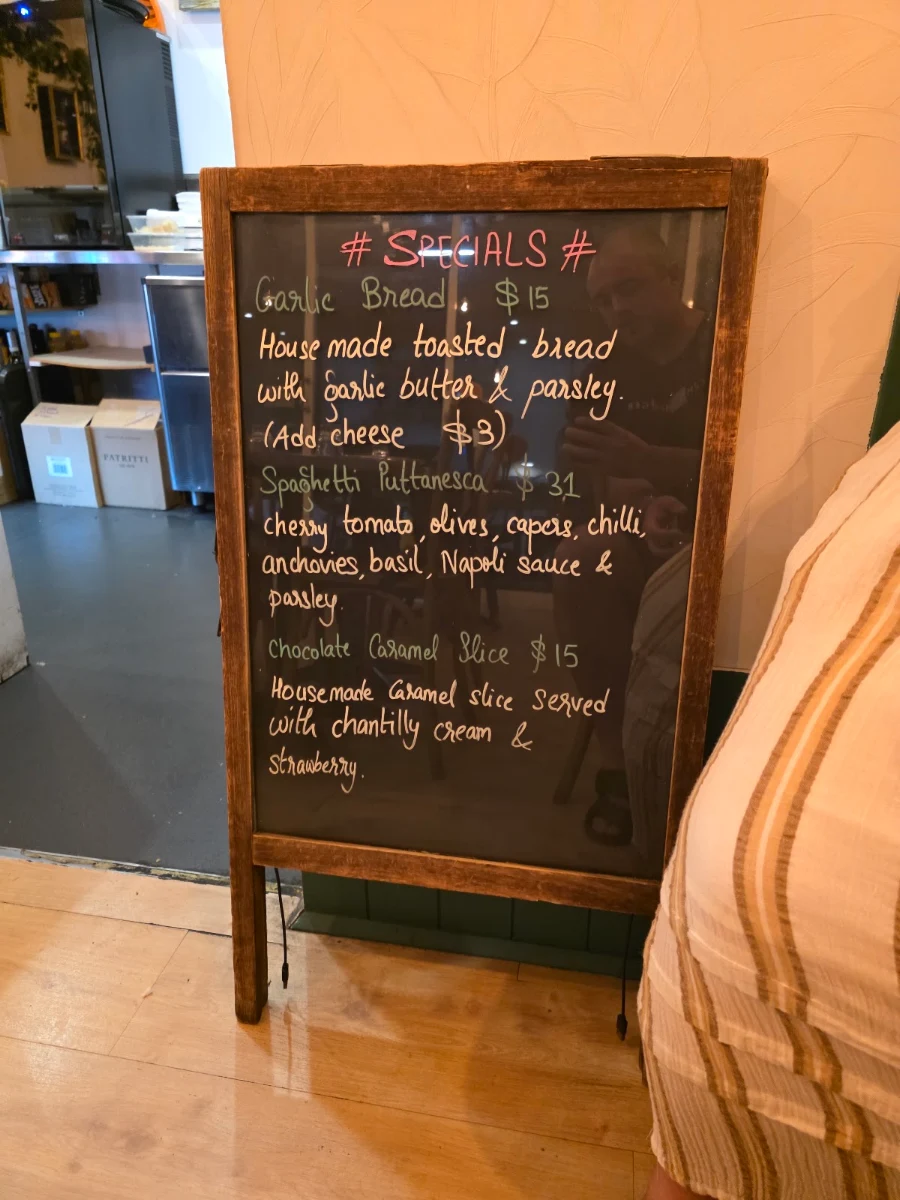 # SPECIALS #
Garlic Bread $15
House made toasted bread
with garlic butter & parsley.
(Add cheese $3)
Spaghetti Puttanesca $31
cherry tomato, olives, capers, chilli,
anchovies, basil, Napoli sauce &
parsley.
chocolate Caramel Slice $15
Housemade Caramel slice served
with chantilly cream &
strawberry.
PATRITTI